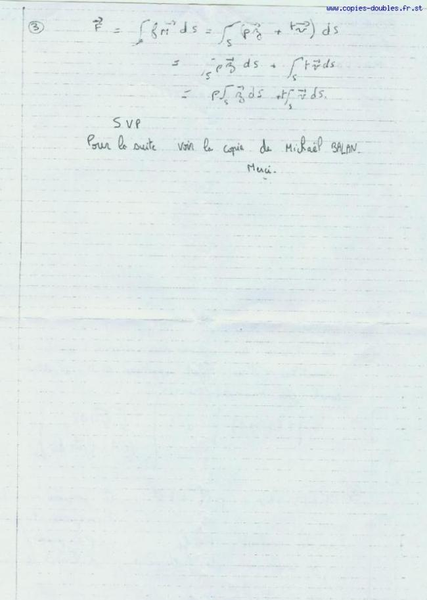 www.copies-doubles.fr.st
③ F⃗ = ∫ dS = ∫_S (p + t) dS
= ∫_S p dS + ∫_S t dS
= p∫_S dS + t∫_S dS.
SVP
Pour la suite voir la copie de Michaël BALAN.
Merci.